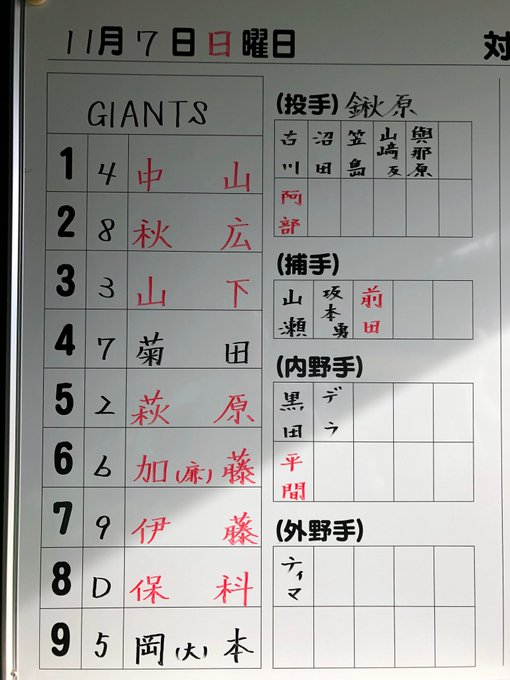 11月7日日曜日
対
GIANTS
1 4 中山
2 8 秋広
3 3 山下
4 7 菊田
5 2 萩原
6 6 加(廉)藤
7 9 伊藤
8 D 保科
9 5 岡(大)本
(投手) 鍬原
古川 沼田 笠島 山﨑友 與那原
阿部
(捕手)
山瀬 坂本勇 前田
(内野手)
黒田 デラ
平間
(外野手)
ティマ